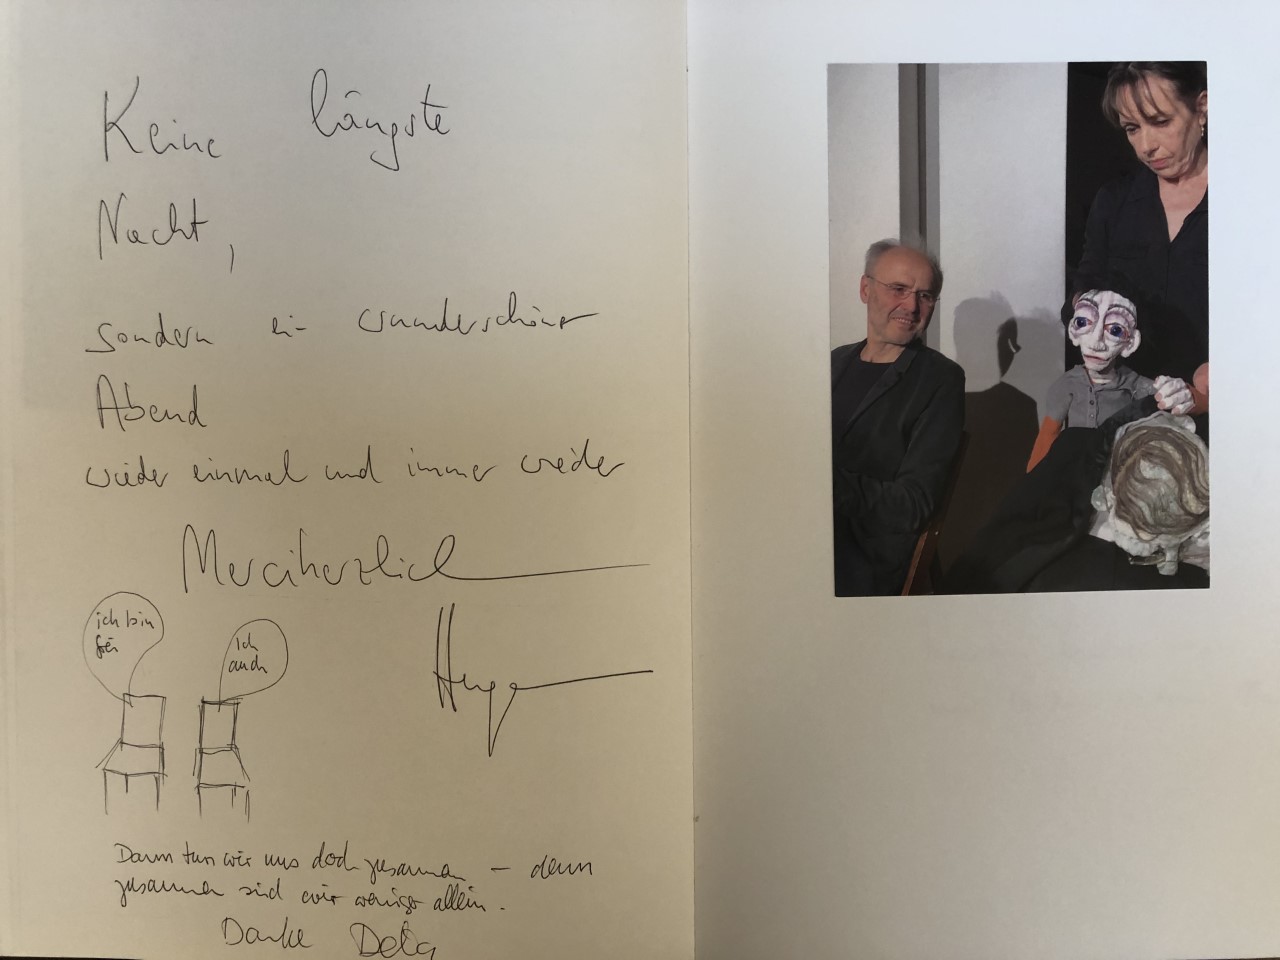 Keine längste
Nacht,
sondern ein wunderschöner
Abend
wieder einmal und immer wieder
Merciherzlich
ich bin
frei
ich
auch
Dann tun wir uns doch zusammen – denn
zusammen sind wir weniger allein.
Danke